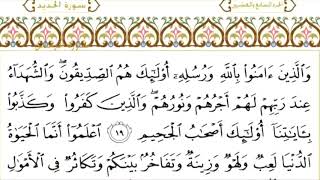 الجزء السابع والعشرين سورة الحديد
وَٱلَّذِينَ ءَامَنُوا۟ بِٱللَّهِ وَرُسُلِهِۦٓ أُو۟لَٰٓئِكَ هُمُ ٱلصِّدِّيقُونَ ۖ وَٱلشُّهَدَآءُ
عِندَ رَبِّهِمْ لَهُمْ أَجْرُهُمْ وَنُورُهُمْ ۖ وَٱلَّذِينَ كَفَرُوا۟ وَكَذَّبُوا۟
بِـَٔايَٰتِنَآ أُو۟لَٰٓئِكَ أَصْحَٰبُ ٱلْجَحِيمِ ١٩ ٱعْلَمُوٓا۟ أَنَّمَا ٱلْحَيَوٰةُ
ٱلدُّنْيَا لَعِبٌ وَلَهْوٌ وَزِينَةٌ وَتَفَاخُرٌۢ بَيْنَكُمْ وَتَكَاثُرٌ فِى ٱلْأَمْوَٰلِ